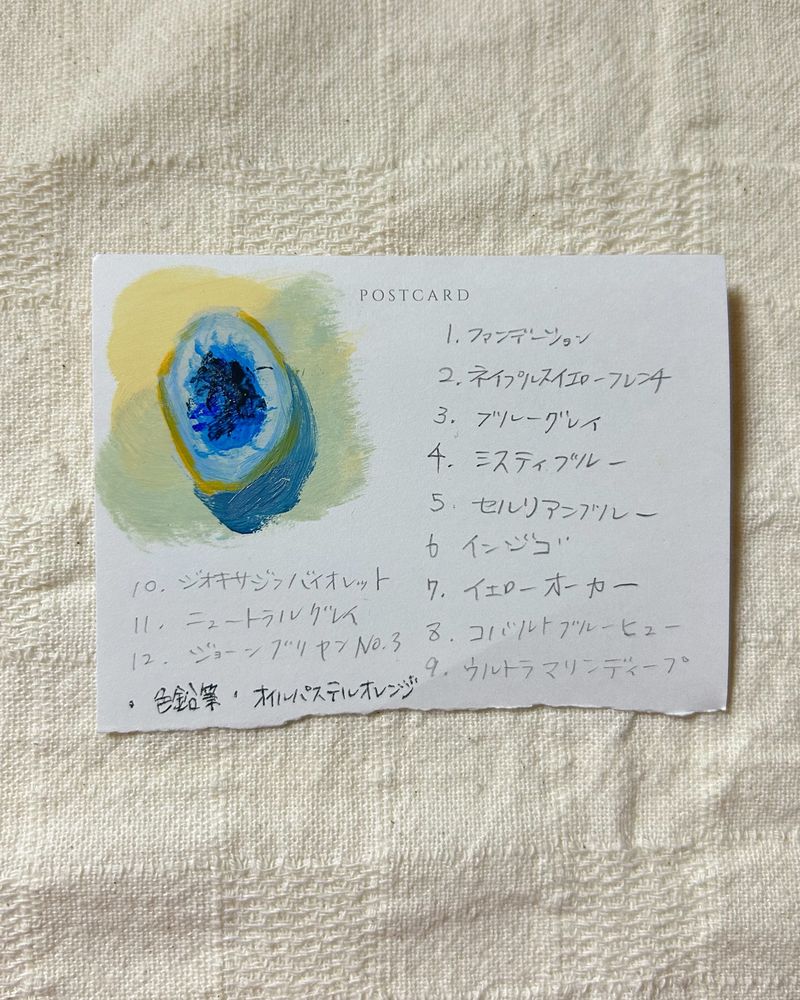 POSTCARD
1. ファンデーション
2. ネイプルスイエローフレンチ
3. ブルーグレイ
4. ミスティブルー
5. セルリアンブルー
6 インジゴ
7. イエローオーカー
8. コバルトブルーヒュー
9. ウルトラマリンディープ
10. ジオキサジンバイオレット
11. ニュートラルグレイ
12. ジョーンブリヤンNo.3
・色鉛筆・オイルパステルオレンジ